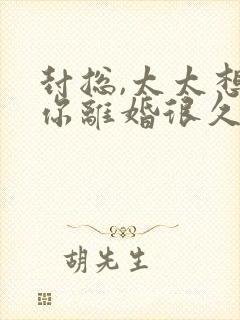 封总,太太想
你离婚很久
胡先生